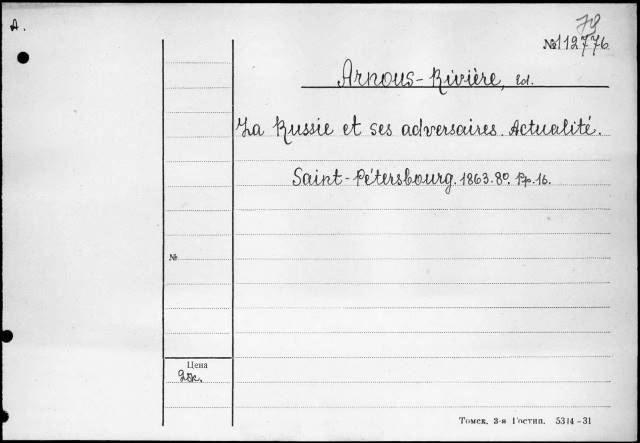 A.
79
№112776
Arnous-Rivière, Ed.
La Russie et ses adversaires. Actualité.
Saint-Pétersbourg. 1863. 8º. Pp. 16.
№
Цена
Томск. 3-я Гостип. 5314-31